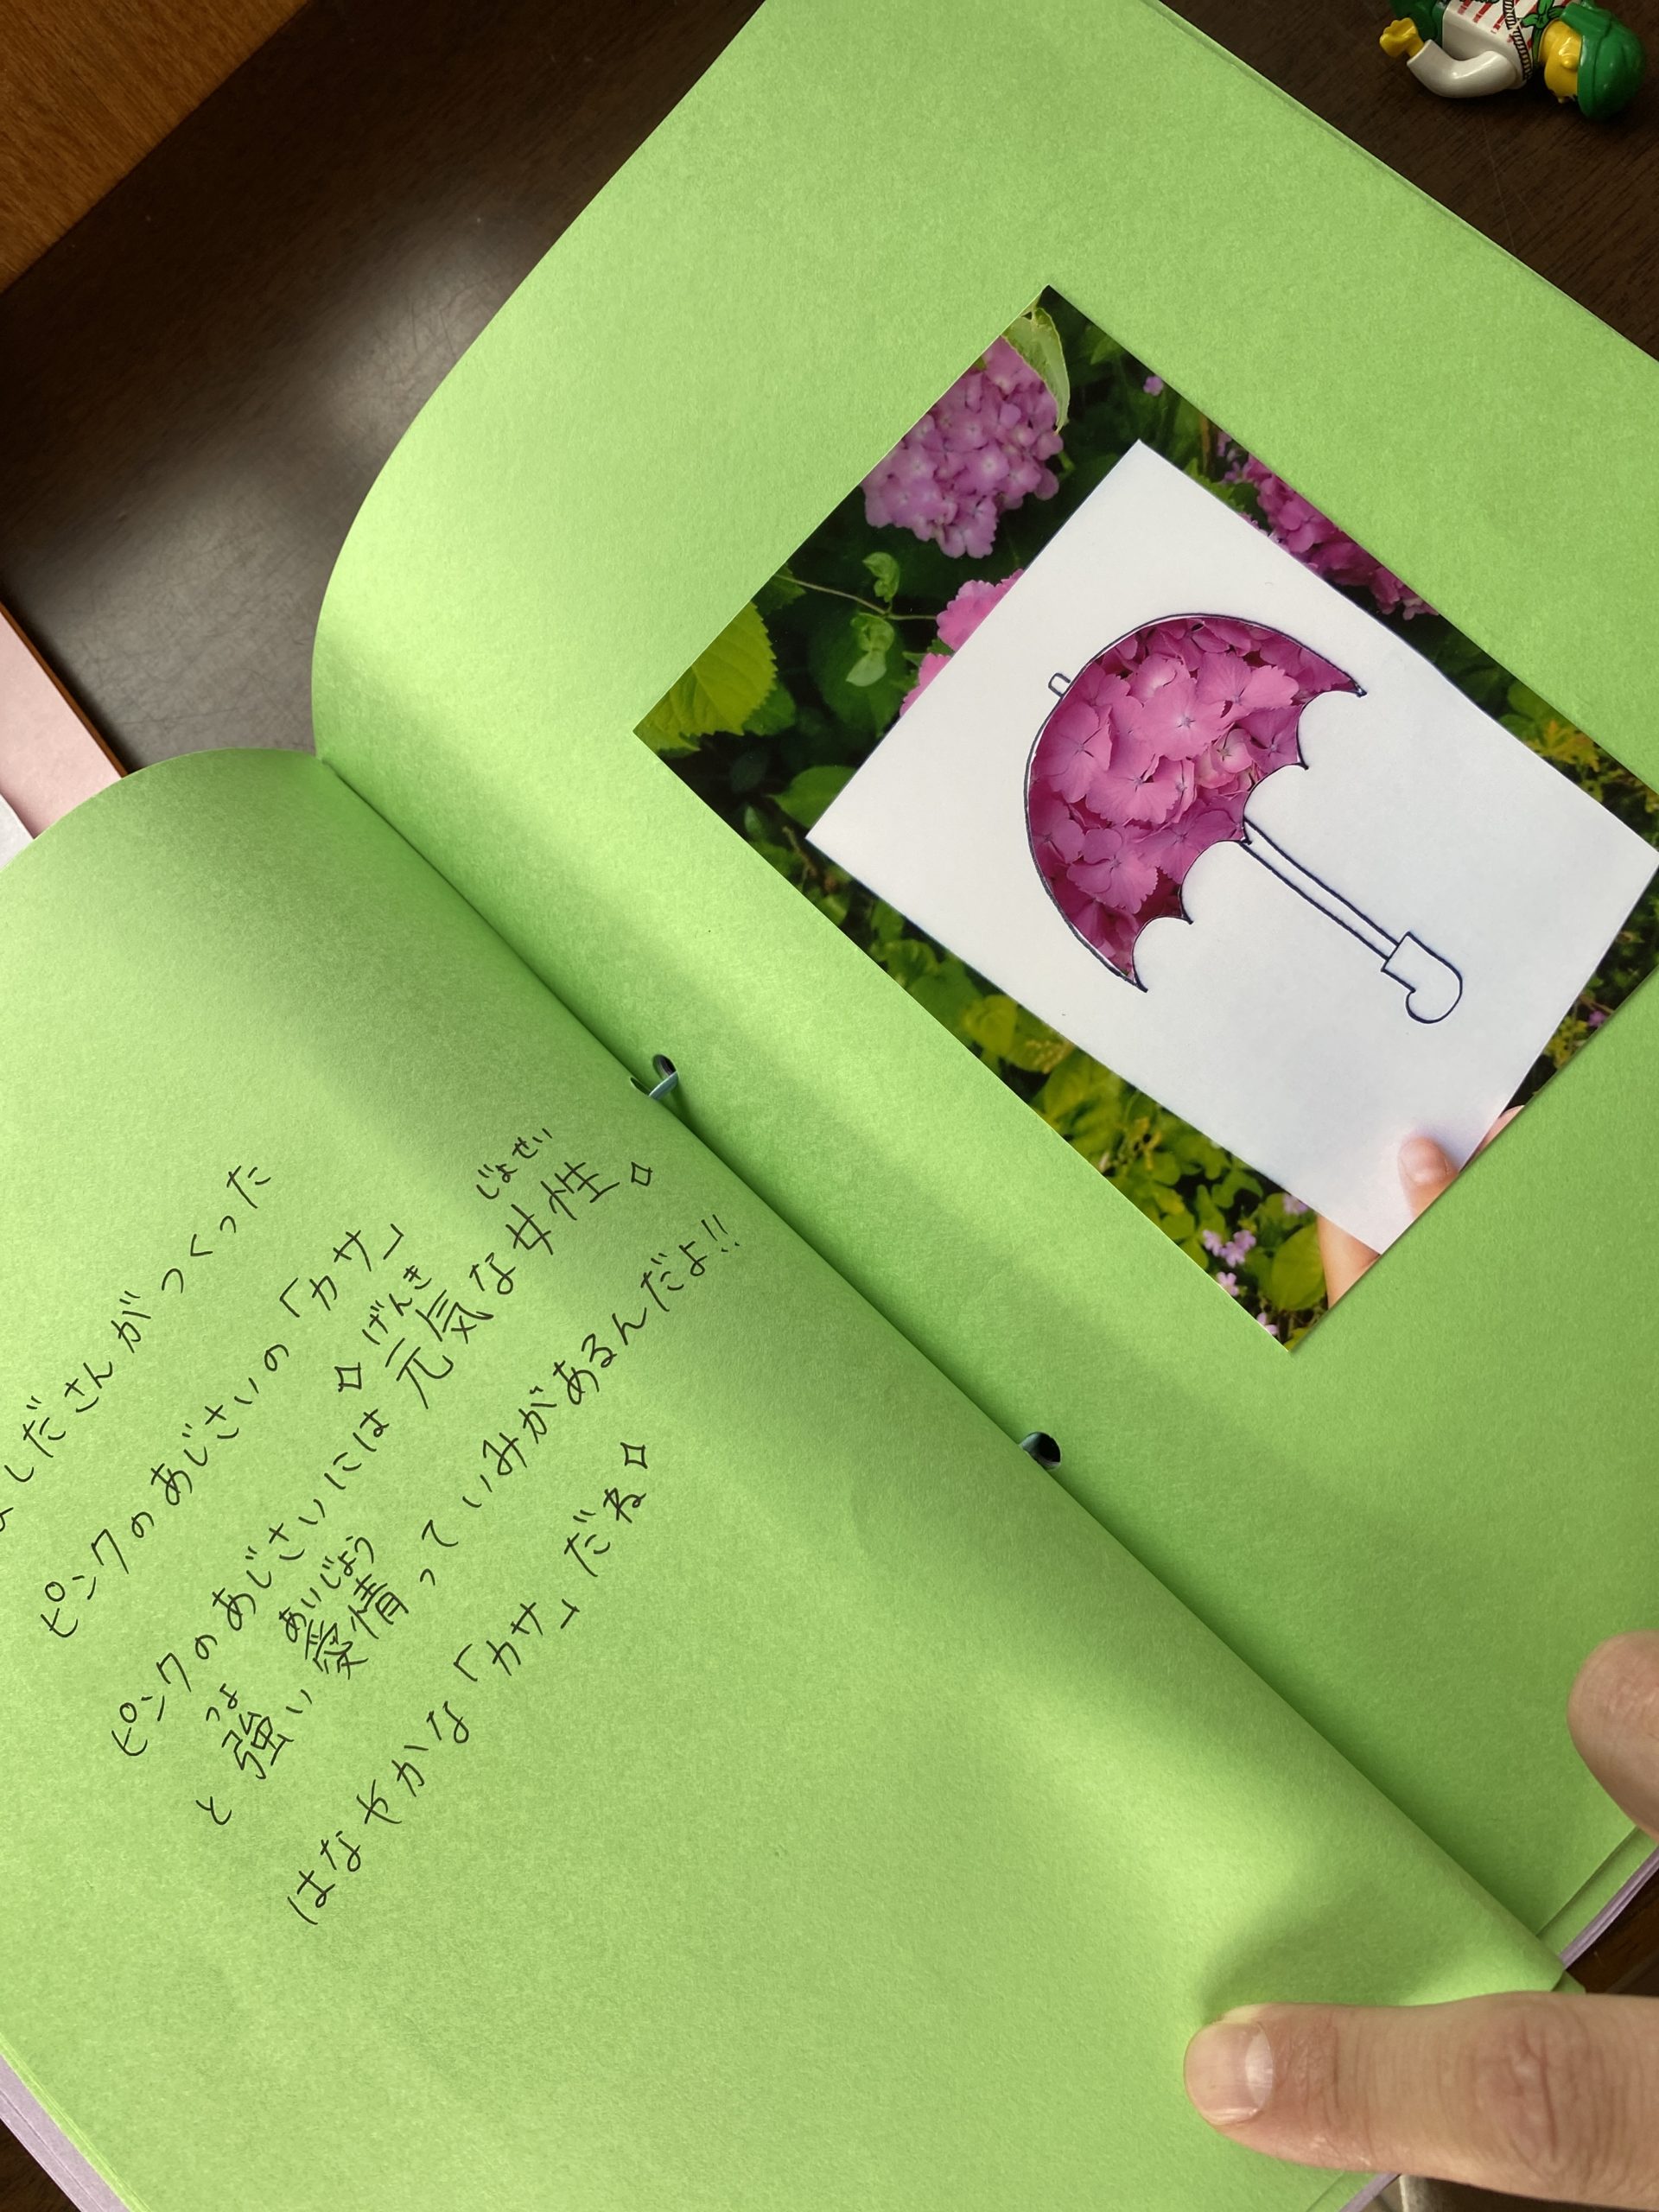 しださんがつくった
ピンクのあじさいの「カサ」
ピンクのあじさいには元気な女性。
げんき じょせい
と強い愛情っていみがあるんだよ!!
つよ あいじょう
はなやかな「カサ」だね